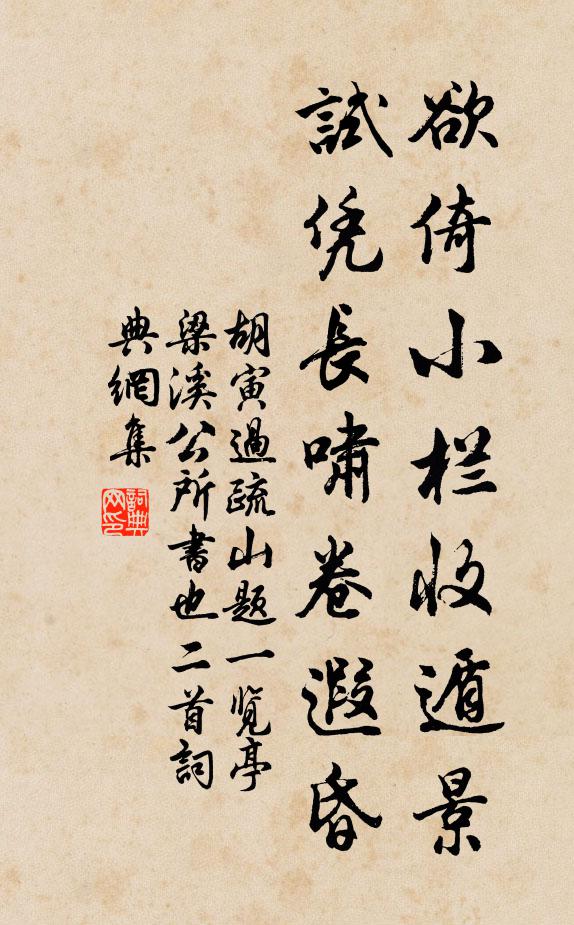 欲倚小栏收遁景
試凭長嘯卷遐昏
胡寅過疏山題一覽亭
梁溪公所書也二首詞
典網集
詞典网印